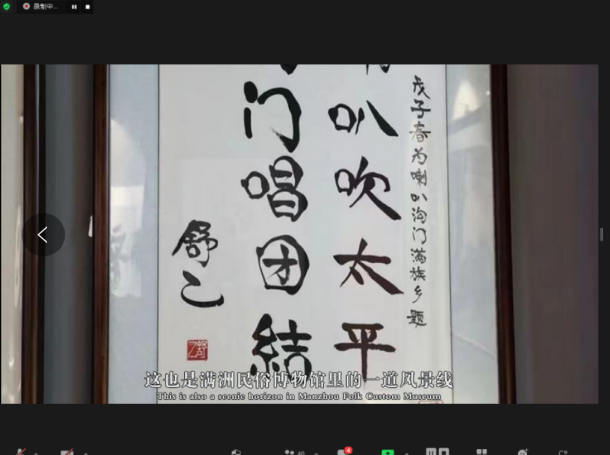 录制中...
戊子春为喇叭沟门满族乡题
叭吹太平
门唱团結
舒乙
这也是满洲民俗博物馆里的一道风景线
This is also a scenic horizon in Manzhou Folk Custom Museum